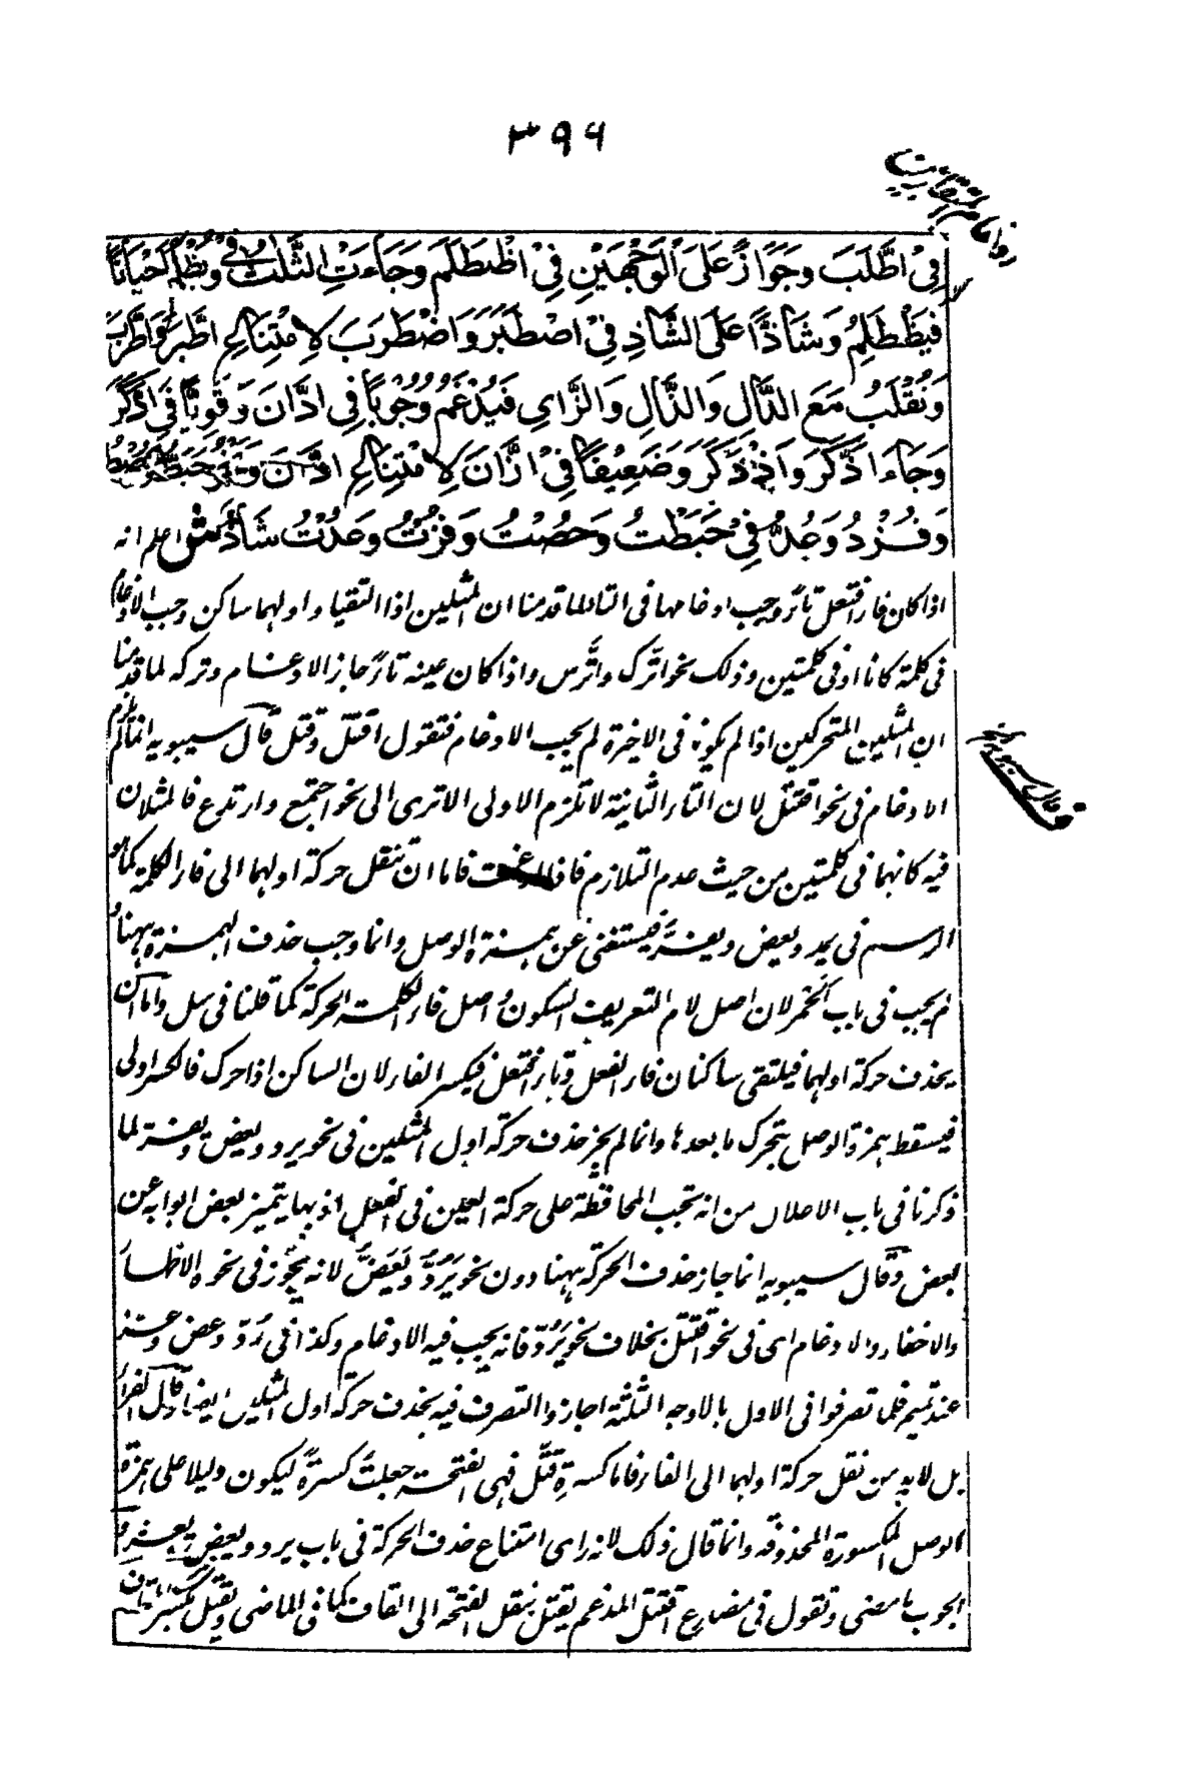 ٣٩٦
فِيْ اطَّلَبَ وَجَوَازًا عَلَى الْوَجْهَيْنِ فِيْ اظْطَلَمَ وَجَاءَتِ الثَّلٰثُ فِيْ وَيُظْلَمُ اَحْيَانًا
فَيَظْطَلِمُ وَشَاذًّا عَلَى الشَّاذِ فِيْ اصْطَبَرَ وَاضْطَرَبَ لِامْتِنَاعِ اطَّبَرَ وَاطَّرَبَ
وَتُقْلَبُ مَعَ الدَّالِ وَالذَّالِ وَالزَّايِ فَيُدْغَمُ وُجُوْبًا فِي ادَّانَ وَقَوِيًّا فِيْ ادَّكَرَ
وَجَاءَ اذَّكَرَ وَاذْدَكَرَ وَضَعِيْفًا فِيْ ازَّانَ لِامْتِنَاعِ ادَّانَ وَنَحْوُ خَبَطُّ وَحُصْطُ
وَفُزْدُ وَعُدُّ فِيْ خَبَطْتُ وَحُصْتُ وَفُزْتُ وَعُدْتُ شَاذٌّ ش اعلم انه
اذا كان فاء افتعل تاء وجب ادغامها فى التاء لما قدمنا ان المثلين اذا التقيا واولهما ساكن وجب الادغام
فى كلمة كانا او فى كلمتين وذلك نحو اتَّرك واتَّرس واذا كان عينه تاء جاز الادغام وتركه لما قدمنا
ان المثلين المتحركين اذا لم يكونا فى الاخيرة لم يجب الادغام فتقول اقتتل وقتل قال سيبويه انما لم يلزم
الادغام فى نحو اقتتل لان التاء الثانية لا تلزم الاولى الا ترى الى نحو اجتمع وارتدع فالمثلان
فيه كانهما فى كلمتين من حيث عدم التلازم فاذا ادغمت فاما ان تنقل حركة اولهما الى فاء الكلمة كما هو
الرسم فى يمد ويعض ويفر فيستغنى عن همزة الوصل وانما وجب حذف الهمزة ههنا و
لم يجب فى باب اَلَحْمَر لان اصل لام التعريف السكون واصل فاء الكلمة الحركة كما قلنا فى سل واما ان
يحذف حركة اولهما فيلتقى ساكنان فاء الفعل وتاء افتعل فيكسر الفاء لان الساكن اذا حرك فالكسر اولى
فيسقط همزة الوصل بتحرك ما بعدها وانما لم يجز حذف حركة اول المثلين فى نحو يرد ويعض ويفر لما
ذكرنا فى باب الاعلال من انه تجب المحافظة على حركة العين فى الفعل اذ بها يتميز بعض ابوابه عن
بعض وقال سيبويه انما جاز حذف الحركة ههنا دون نحو يَرُدُّ ويَعَضُّ لانه يجوز فى نحوه الاظهار
والاخفاء والادغام اى فى نحو اقتتل بخلاف نحو يَرُدّ فانه يجب فيه الادغام وكذا فى رُدّ وعض وفر
عند تميم فلما تصرفوا فى الاول بالاوجه الثلثة اجازوا التصرف فيه بحذف حركة اول المثلين ايضا وقال الفراء
بل لابد من نقل حركة اولهما الى الفاء فاما كسرة قِتَّل فهى الفتحة جعلت كسرة ليكون دليلا على همزة
الوصل المكسورة المحذوفة وانما قال ذلك لانه راى امتناع حذف الحركة فى باب يرد ويعض ويفر و
الجوب ما مضى وتقول فى مضارع اقتتل المدغم يقتل بنقل الفتحة الى القاف كما فى الماضى ويقتل بكسر القاف
قال سيبويه